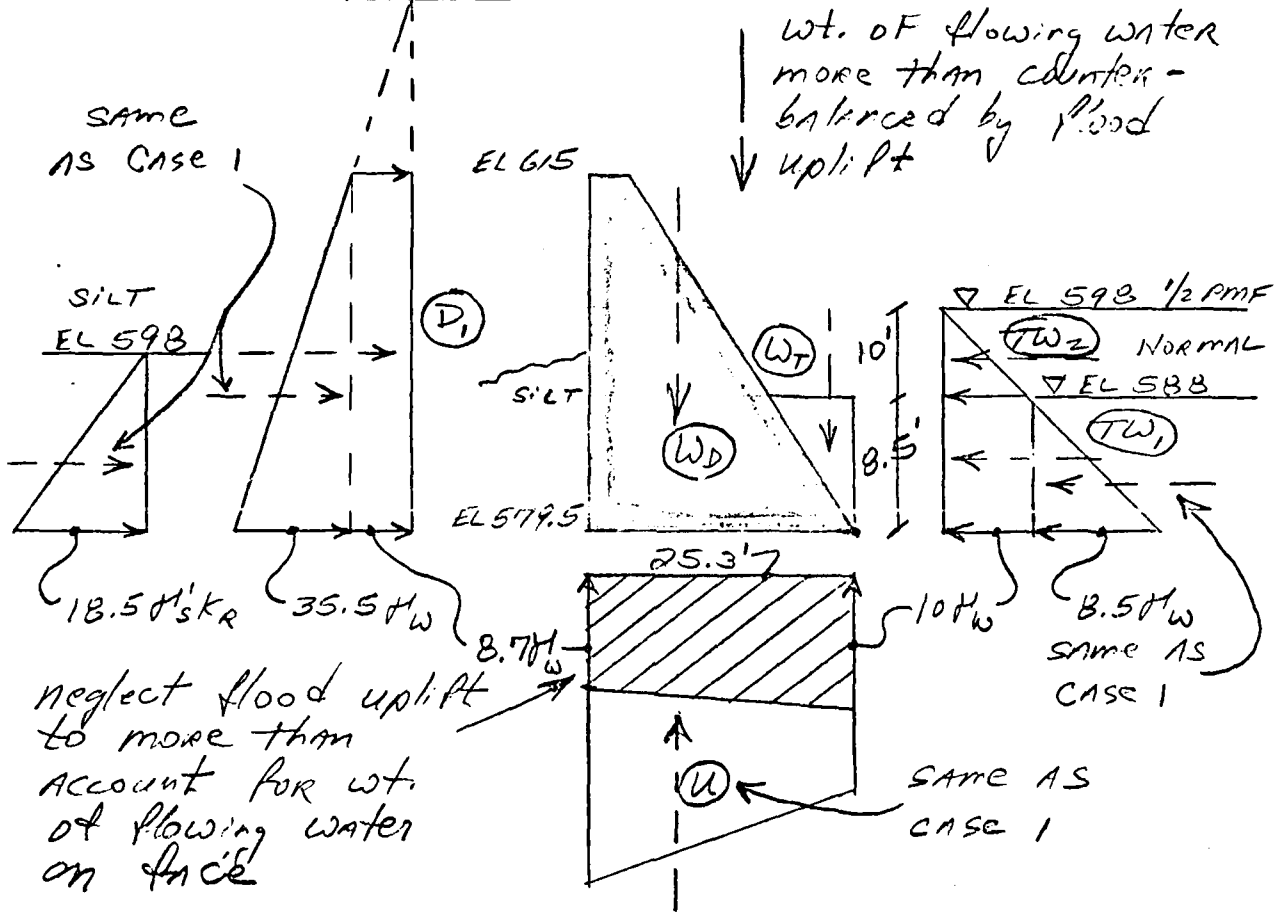 wt. of flowing water
more than counter-
balanced by flood
uplift
SAME
AS CASE 1
EL 615
SILT
EL 598
D₁
SILT
W_T
W_D
10'
8.5'
▽ EL 598 1/2 PMF
TW₂ NORMAL
▽ EL 588
TW₁
EL 579.5
25.3'
18.5 γ'ₛ k_R
35.5 γ_w
8.7 γ_w
10 γ_w
8.5 γ_w
SAME AS
CASE 1
neglect flood uplift
to more than
account for wt.
of flowing water
on face
U
SAME AS
CASE 1